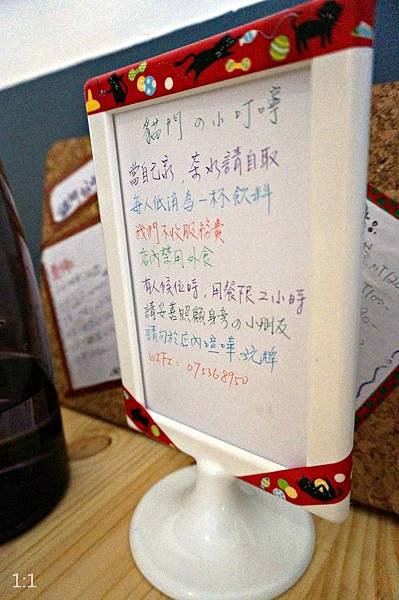 貓門の小叮嚀
當自己家，茶水請自取
每人低消為一杯飲料
我們不收服務費
店內禁用外食
有人候位時，用餐限2小時
請妥善照顧身旁の小朋友
請勿於店內喧嘩、玩牌
WIFI：075368950
1:1